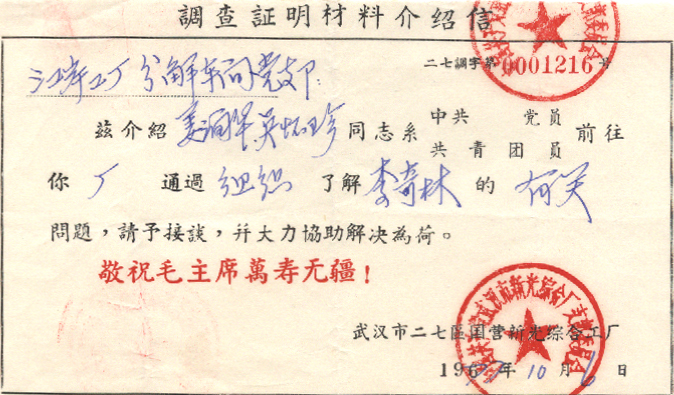 調查証明材料介绍信
二七調字第0001216号
江岸工厂分解车间党支部:
兹介紹 同志系 中共党员 前往
共青团员
你厂 通過 组织 了解 李奇林 的 有关
問題，請予接談，幷大力協助解决為荷。
敬祝毛主席萬寿无疆！
武汉市二七區国营新光综合工厂
196 年10月6日